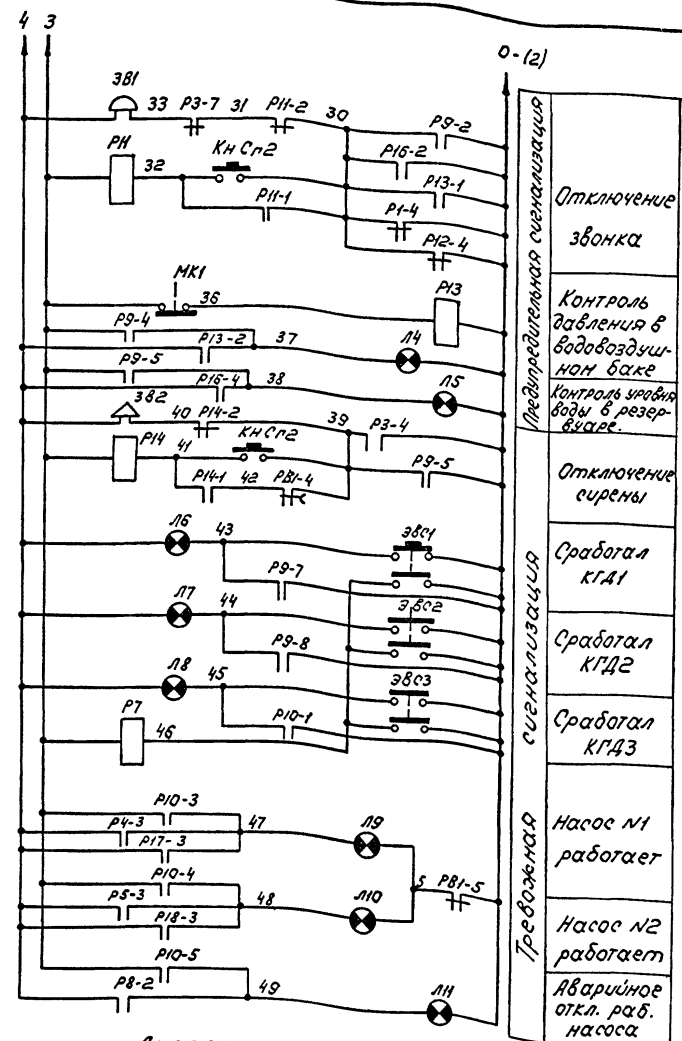 4 3
0-(2)
ЗВ1
33 Р3-7 31 Р11-2 30
Р9-2
РН
32
КнСп2
Р16-2
Р13-1
Р11-1
Р1-4
Р12-4
МК1
36
Р13
Р9-4
Р13-2
37
Л4
Р9-5
Р16-4
38
Л5
ЗВ2
40 Р14-2
39
Р3-4
Р14
41
КнСп2
Р9-5
Р14-1
42
РВ1-4
Л6
43
ЭВС1
Р9-7
Л7
44
ЭВС2
Р9-8
Л8
45
ЭВС3
Р10-1
Р7
46
Р10-3
Р4-3
47
Р17-3
Л9
Р10-4
Р5-3
48
Р18-3
Л10
5 РВ1-5
Р10-5
Р8-2
49
Л11
Предупредительная сигнализация
Отключение
звонка
Контроль
давления в
водовоздуш-
ном баке
Контроль уровня
воды в резер-
вуаре.
Тревожная сигнализация
Отключение
сирены
Сработал
КГД1
Сработал
КГД2
Сработал
КГД3
Насос N1
работает
Насос N2
работает
Аварийное
откл. раб.
насоса